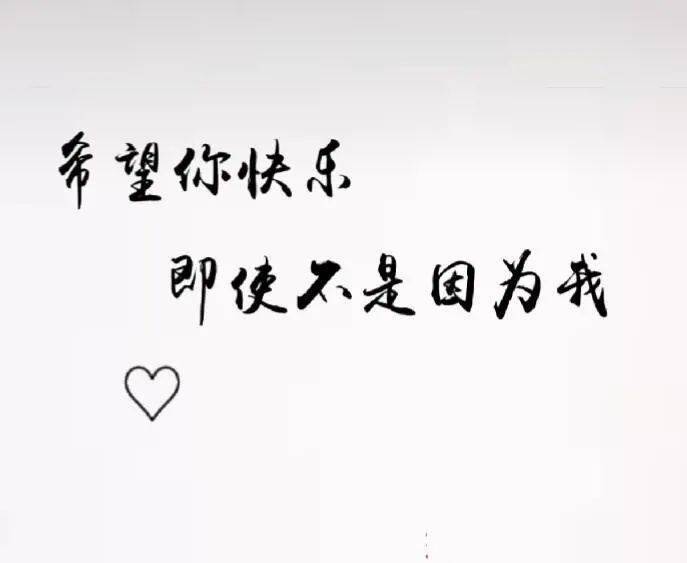 希望你快乐
即使不是因为我